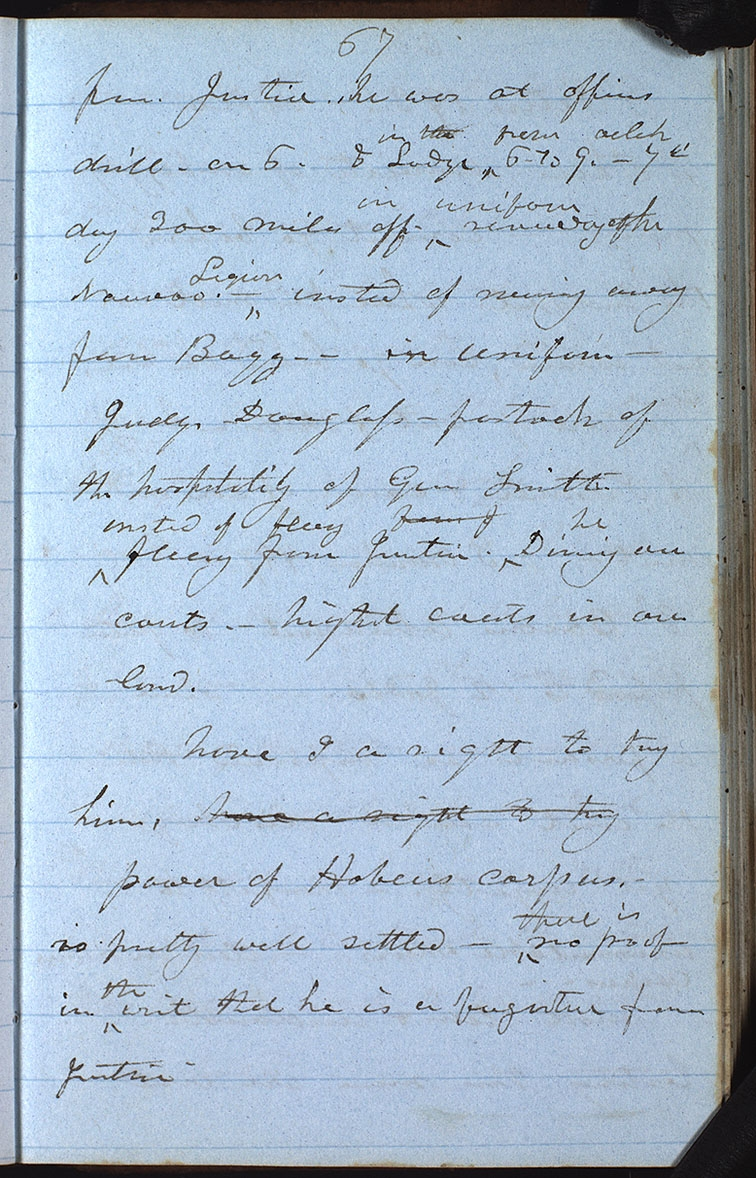 67
from. Justice. he was at officers
in the
drill - on 6. & Lodge 6 to 9. - 7th
in uniform
day 300 miles off. review of the
Legion
Nauvoo. insted of runing away
from Bogg -- in uniform -
Judge Douglass - partook of
the hospitality of Gen Smith
insted of fleeing from J he
fleeing from Justice. Dining on
couts - highest couts in our
land.
have I a right to try
him, have a right to try
power of Habeus corpus. -
is pretty well settled -
there is
no proof
the
in writ that he is a fugitive from
Justice